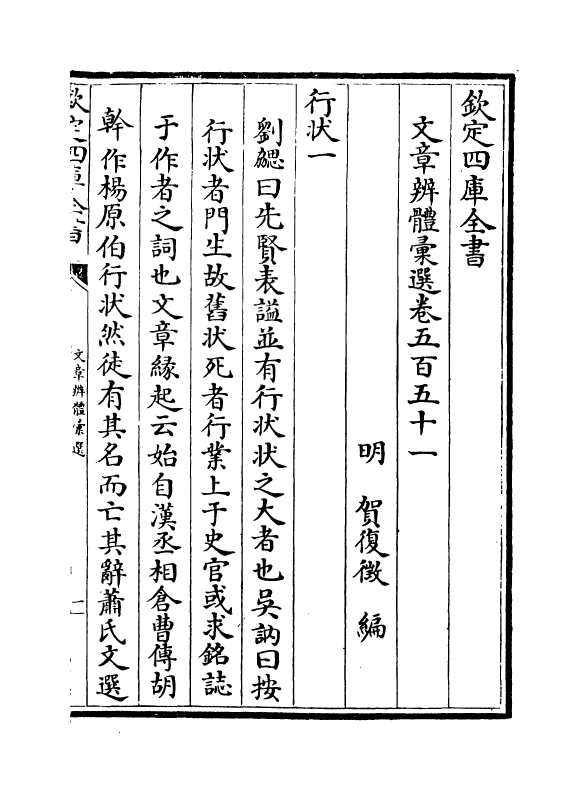 欽定四庫全書
文章辨體彙選卷五百五十一
明 賀復徵 編
行状一
劉勰曰先賢表謚並有行状状之大者也吳訥曰按
行状者門生故舊状死者行業上于史官或求銘誌
于作者之詞也文章緣起云始自漢丞相倉曹傳胡
幹作楊原伯行状然徒有其名而亡其辭蕭氏文選
欽定四庫全書
文章辨體彙選
一